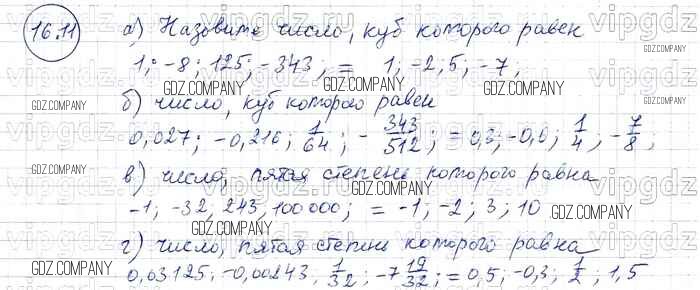 16.11 а) Назовите число, куб которого равен
1; -8; 125; -343; = 1; -2; 5; -7;
б) число, куб которого равен
0,027; -0,216; 1/64; -343/512; = 0,3; -0,6; 1/4; -7/8;
в) число, пятая степень которого равна
-1; -32, 243, 100000; = -1; -2; 3; 10
г) число, пятая степень которого равна
0,03125; -0,00243, 1/32; -7 19/32; = 0,5; -0,3; 1/2; 1,5
GDZ.COMPANY
vipgdz